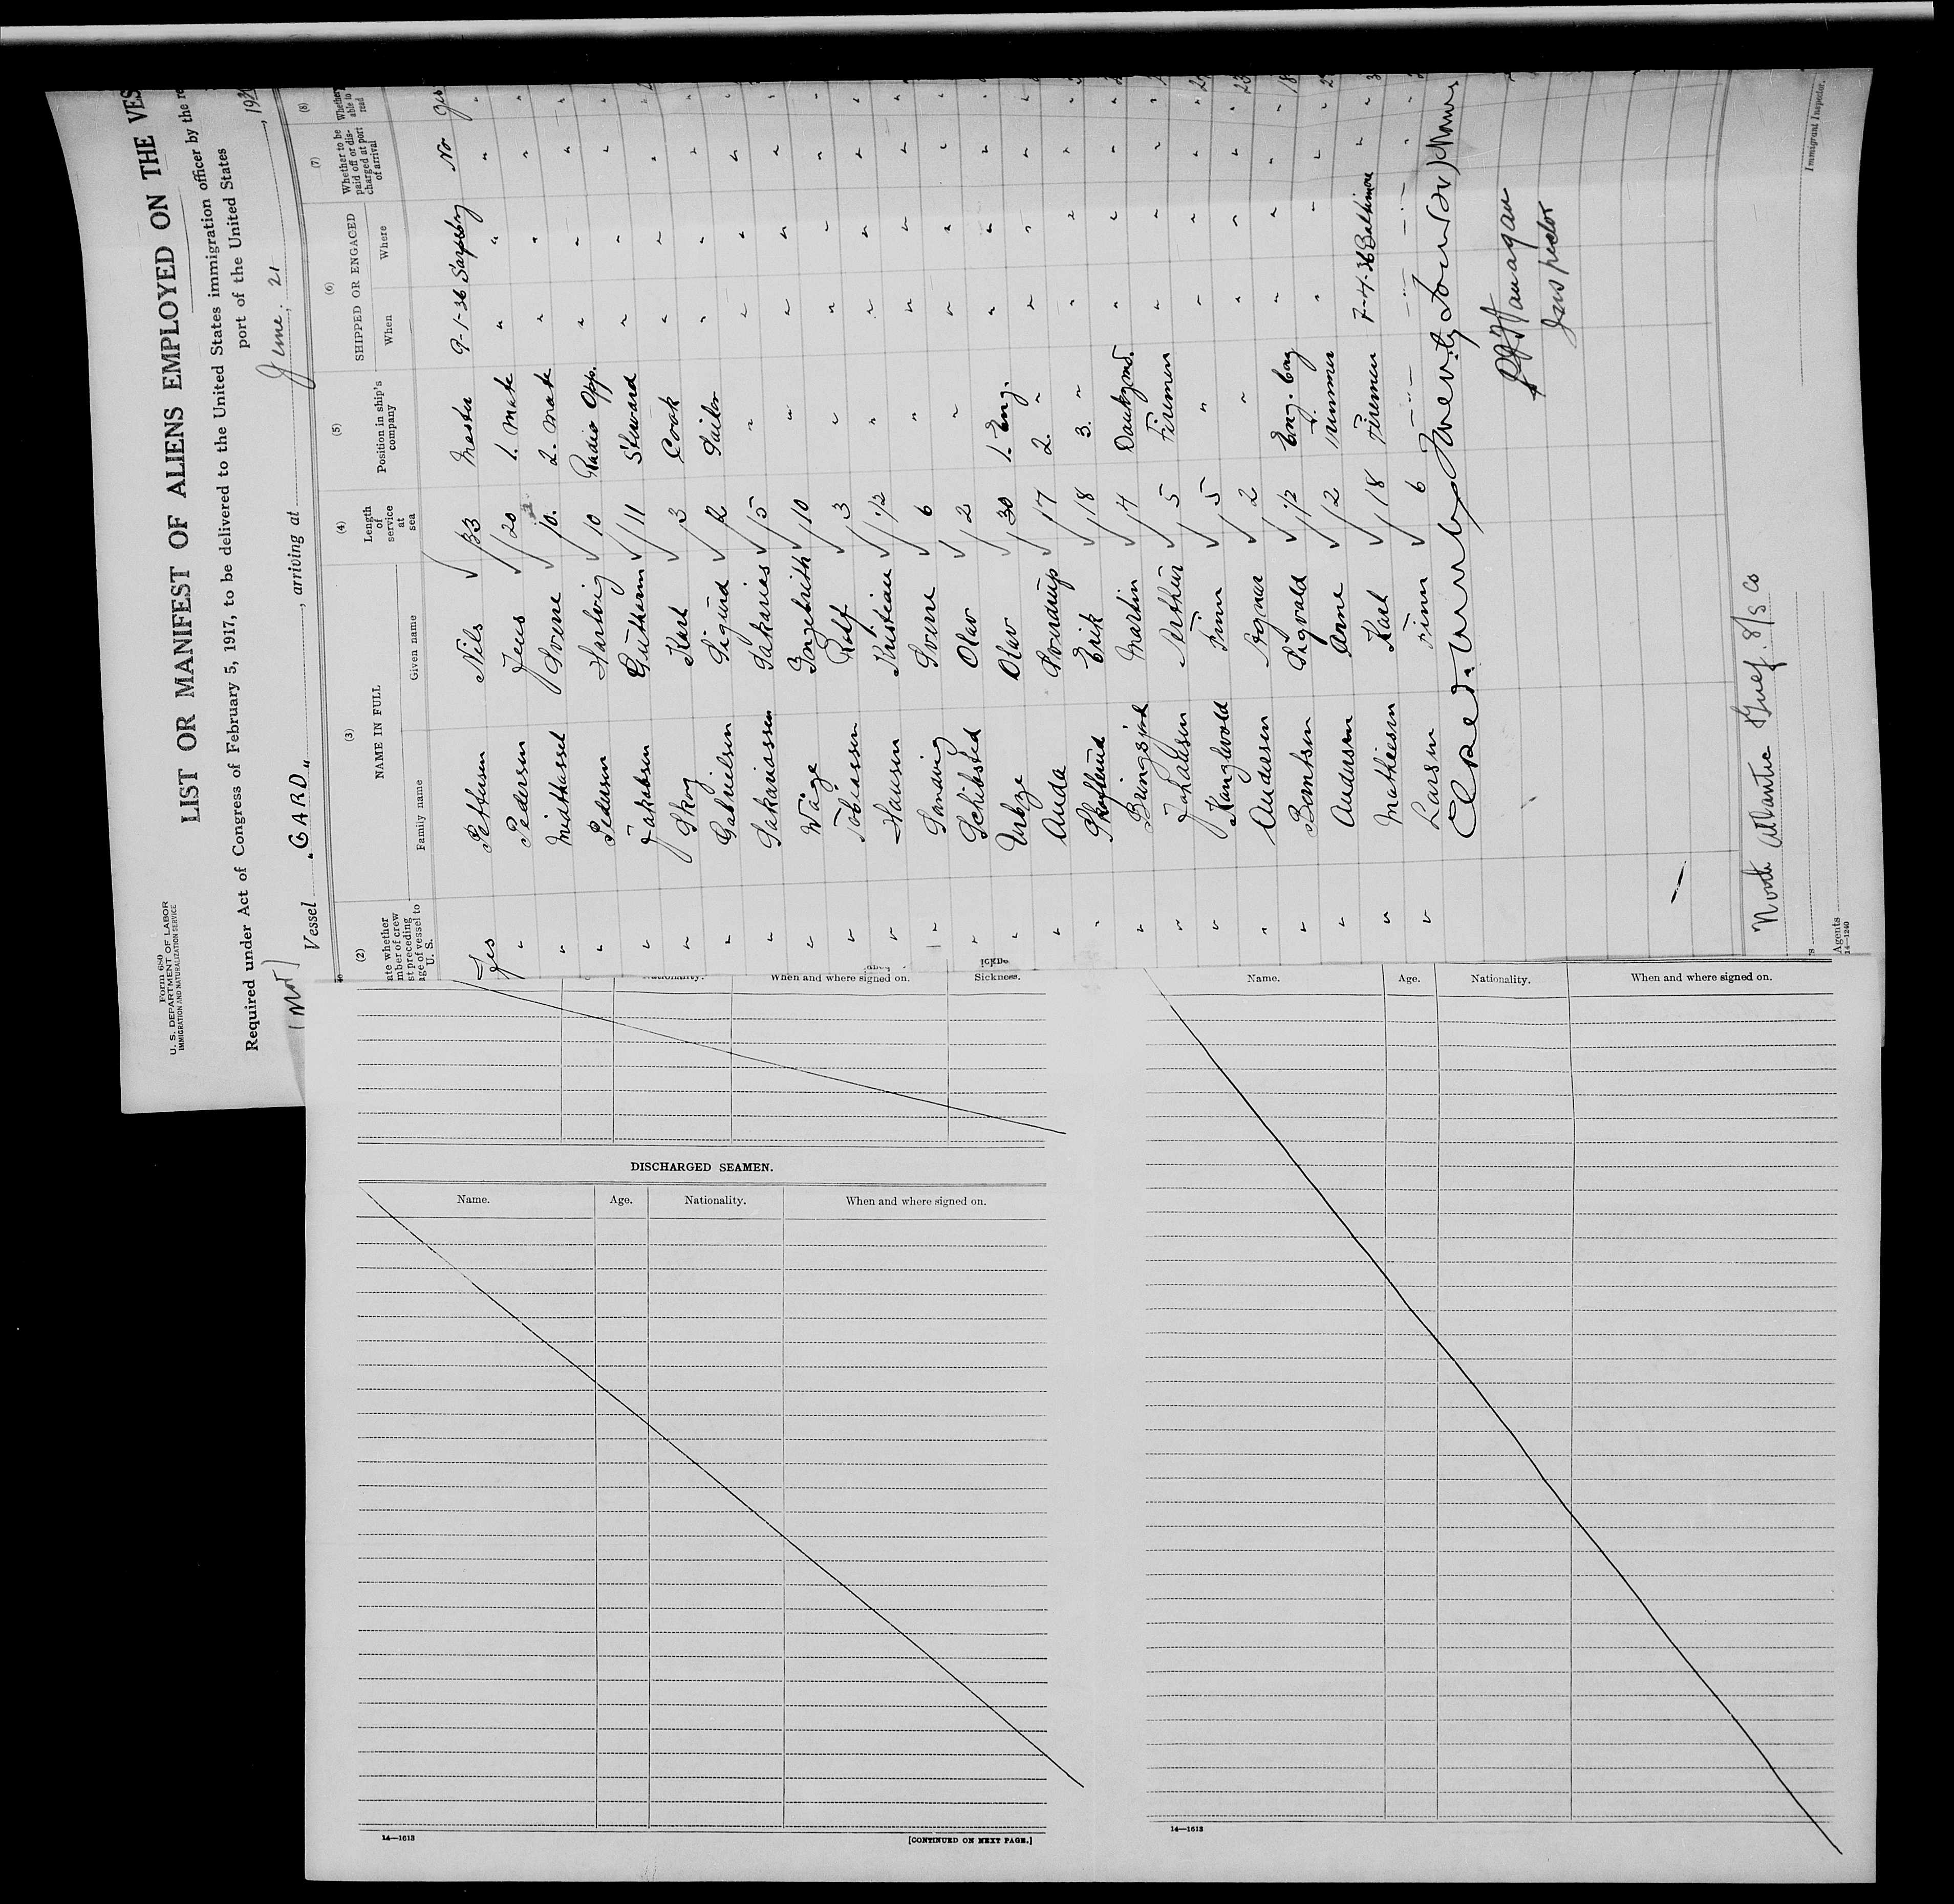 Form 680
U. S. DEPARTMENT OF LABOR
IMMIGRATION AND NATURALIZATION SERVICE
LIST OR MANIFEST OF ALIENS EMPLOYED ON THE VES
Required under Act of Congress of February 5, 1917, to be delivered to the United States immigration officer by the re
port of the United States
Vessel "GARD", arriving at June 21, 192
(2) (3) (4) (5) (6) (7) (8)
ate whether
mber of crew
st preceding
age of vessel to
U. S.
NAME IN FULL
Family name Given name
Length of service at sea
Position in ship's company
SHIPPED OR ENGAGED
When Where
Whether to be paid off or discharged at port of arrival
Whether able to read
Yes Pettersen Nils 33 Master 9-1-36 Sarpsborg No Yes
" Pedersen Jens 20 1. Mate " " " "
" Midthassel Sverre 10. 2. Mate " " " "
" Pedersen Hartvig 10 Radio Opp. " " " "
" Jakobsen Guthorm 11 Steward " " " "
" Skog Karl 3 Cook " " " "
" Gabrielsen Sigurd 2 Sailor " " " "
" Sakariassen Sakarias 5 " " " " "
" Wåge 10 " " " " "
" Tobiassen Rolf 3 " " " " "
" Hansen Kristian 1/2 " " " " "
" Sverre 6 " " " " "
" Schibsted Olav 2 " " " " "
" Olav 30 1. Eng. " " " "
" Anda Sverdrup 17 2. " " " " "
" Erik 18 3. " " " " "
" Bringsjord Martin 4 Donkeymd. " " " "
" Johansen Arthur 5 Firemen " " " "
" Kanglevold Finn 5 " " " " "
" Andersen Ragnar 2 " " " " "
" Berntsen Sigvald 1/2 Eng. boy " " " "
" Andersen Arne 2 Trimmer " " " "
" Mathiesen Karl 18 Firemen 7-4-36 Baltimore " "
" Larsen Finn 6 " " " " "
Closed. Twenty Four (24)
Inspector
North Atlantic & Gulf S/S Co
Immigrant Inspector.
Agents
14—1240
Nationality. When and where signed on. Sickness.
DISCHARGED SEAMEN.
Name. Age. Nationality. When and where signed on.
14—1613
[CONTINUED ON NEXT PAGE.]
Name. Age. Nationality. When and where signed on.
14—1613